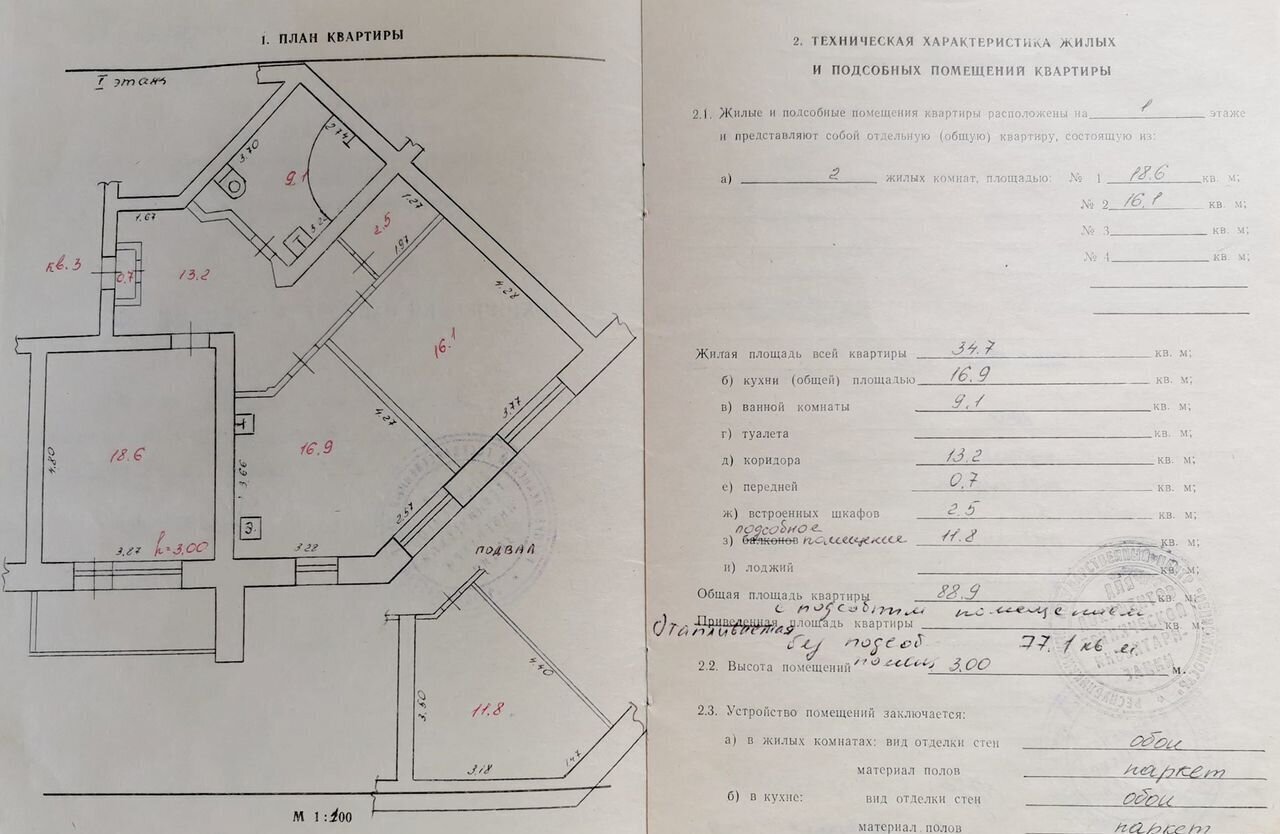 1. ПЛАН КВАРТИРЫ
I этаж
3.70
2.74
9.1
3.22
Т
1.27
2.5
1.97
1.67
кв. 3
0.7
13.2
4.28
16.1
3.77
4.27
4.80
18.6
3.87
h=3.00
16.9
3.66
3.
2.57
3.22
ПОДВАЛ
4.40
3.50
11.8
3.18
1.47
М 1:100
2. ТЕХНИЧЕСКАЯ ХАРАКТЕРИСТИКА ЖИЛЫХ
И ПОДСОБНЫХ ПОМЕЩЕНИЙ КВАРТИРЫ
2.1. Жилые и подсобные помещения квартиры расположены на 1 этаже
и представляют собой отдельную (общую) квартиру, состоящую из:
а) 2 жилых комнат, площадью: № 1 18.6 кв. м;
№ 2 16.1 кв. м;
№ 3 кв. м;
№ 4 кв. м;
Жилая площадь всей квартиры 34.7 кв. м;
б) кухни (общей) площадью 16.9 кв. м;
в) ванной комнаты 9.1 кв. м;
г) туалета кв. м;
д) коридора 13.2 кв. м;
е) передней 0,7 кв. м;
ж) встроенных шкафов 2.5 кв. м;
подсобное
з) балконов помещение 11.8 кв. м;
и) лоджий кв. м;
Общая площадь квартиры 88.9 кв. м;
с подсобным помещением
Приведенная площадь квартиры кв. м
Отапливаемая
без подсоб 77.1 кв м
2.2. Высота помещений помещ 3.00 м.
2.3. Устройство помещений заключается:
а) в жилых комнатах: вид отделки стен обои
материал полов паркет
б) в кухне: вид отделки стен обои
материал полов паркет